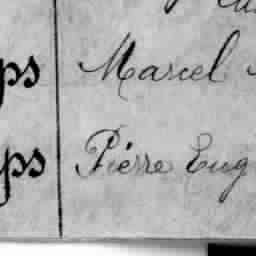 ps Marcel
ps Pierre Eug